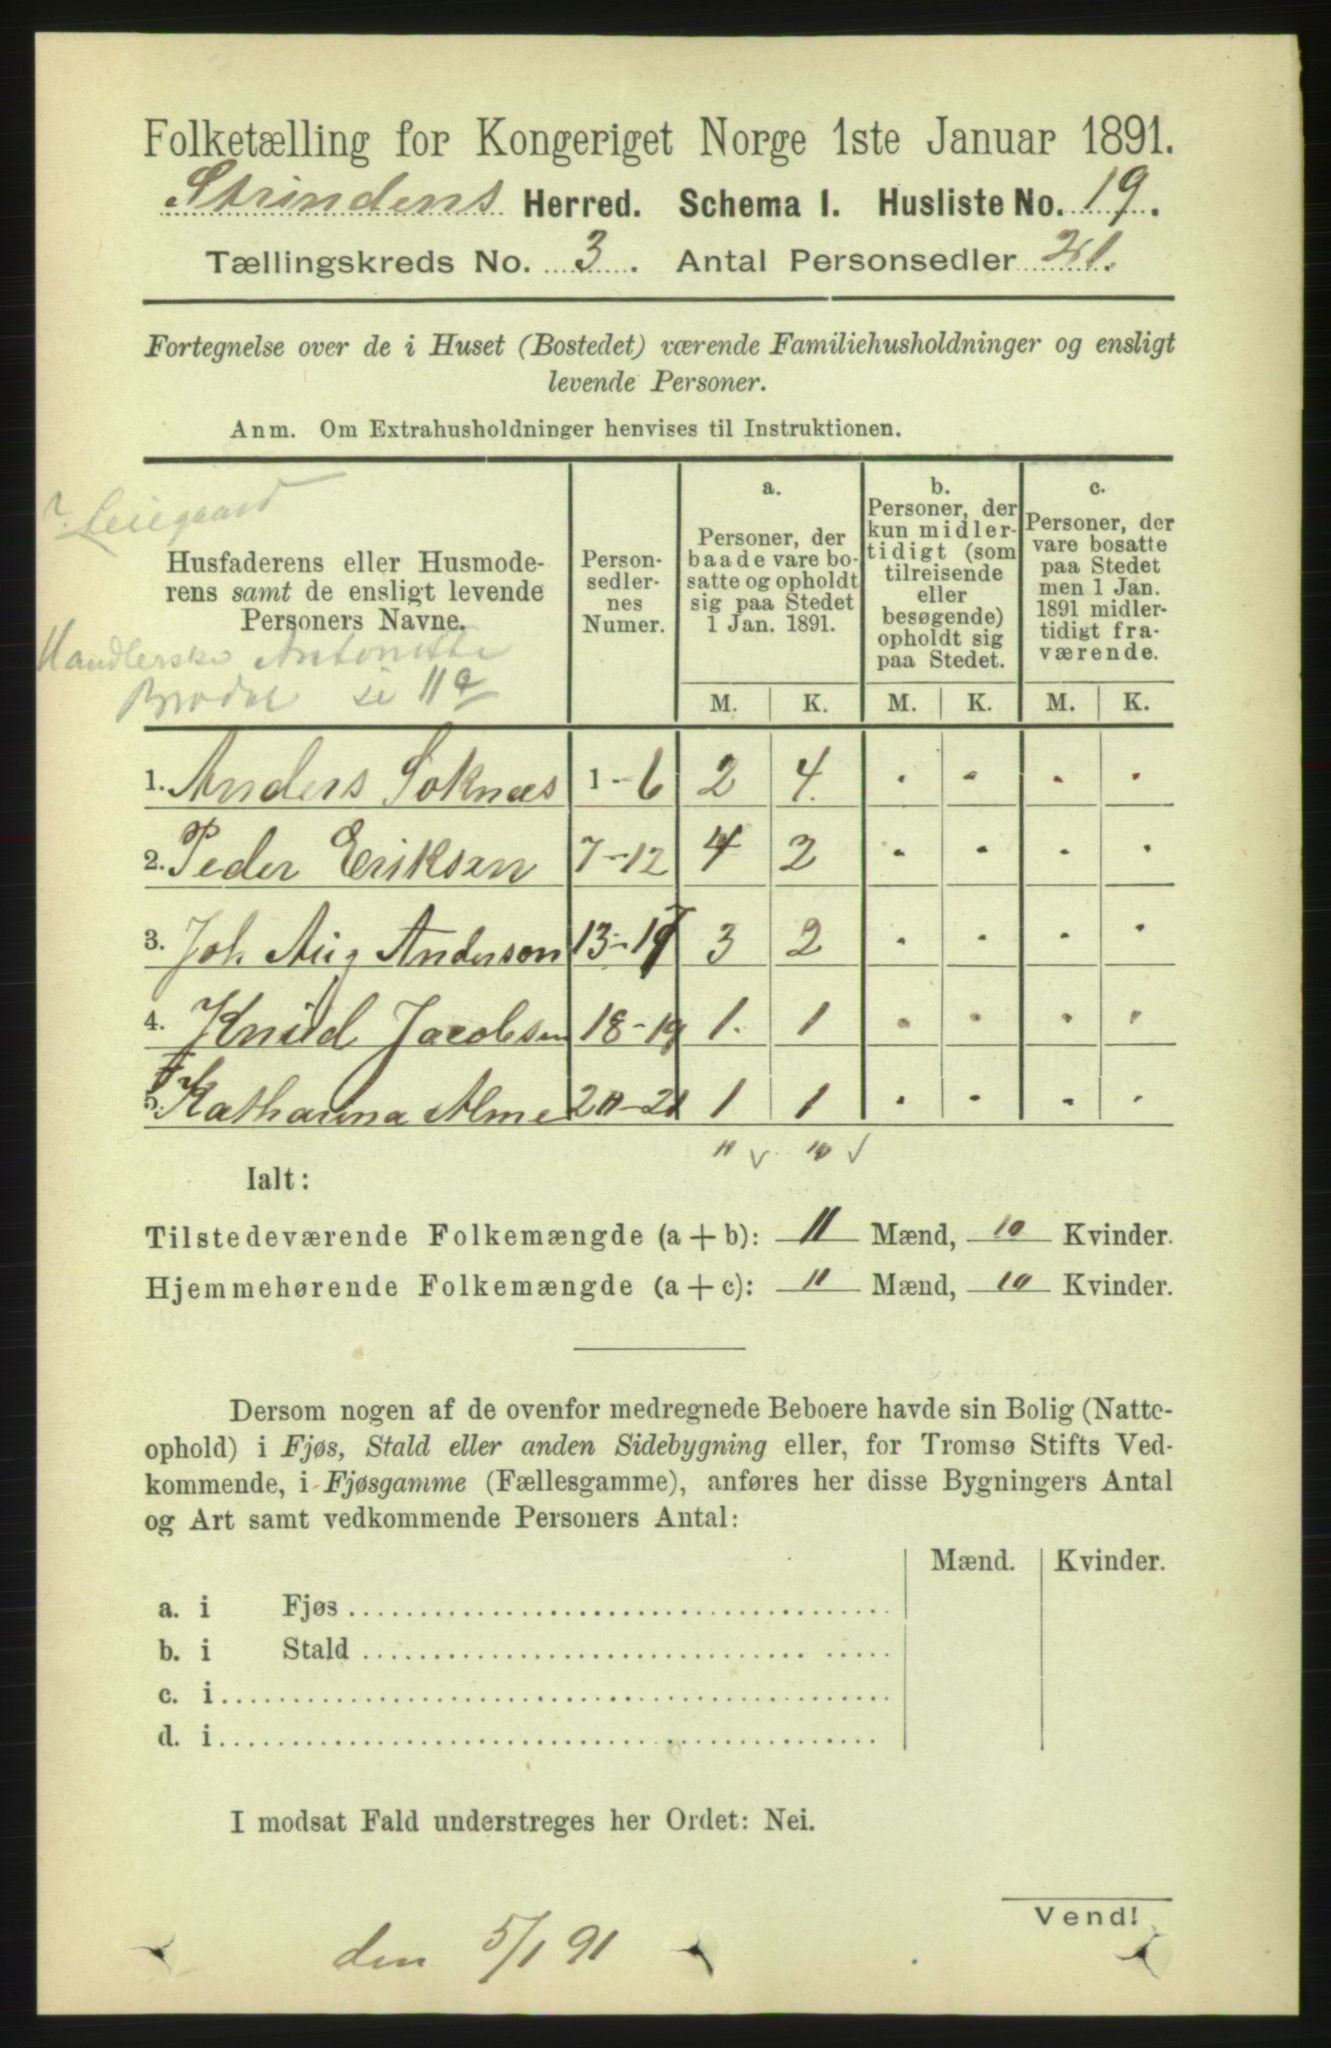 Folketælling for Kongeriget Norge 1ste Januar 1891.
Strindens Herred. Schema 1. Husliste No. 19.
Tællingskreds No. 3. Antal Personsedler 21.
Fortegnelse over de i Huset (Bostedet) værende Familiehusholdninger og ensligt
levende Personer.
Anm. Om Extrahusholdninger henvises til Instruktionen.
Leiegaard
Husfaderens eller Husmode-
rens samt de ensligt levende
Personers Navne.
Handlerske Antonette
Brodal se 11a
Person-
sedler-
nes
Numer.
a.
Personer, der
baade vare bo-
satte og opholdt
sig paa Stedet
1 Jan. 1891.
b.
Personer, der
kun midler-
tidigt (som
tilreisende
eller
besøgende)
opholdt sig
paa Stedet.
c.
Personer, der
vare bosatte
paa Stedet
men 1 Jan.
1891 midler-
tidigt fra-
værende.
M. K. M. K. M. K.
1. Anders Soknæs 1-6 2 4. . . . .
2. Peder Eriksen 7-12 4 2 . . . .
3. Joh Aug Anderson 13-17 3 2 . . . .
4. Knud Jacobsen 18-19 1. 1 . . . .
5. Katharina Alme 20-21 1 1 . . . .
11 v 10 v
Ialt:
Tilstedeværende Folkemængde (a + b): 11 Mænd, 10 Kvinder.
Hjemmehørende Folkemængde (a + c): 11 Mænd, 10 Kvinder.
Dersom nogen af de ovenfor medregnede Beboere havde sin Bolig (Natte-
ophold) i Fjøs, Stald eller anden Sidebygning eller, for Tromsø Stifts Ved-
kommende, i Fjøsgamme (Fællesgamme), anføres her disse Bygningers Antal
og Art samt vedkommende Personers Antal:
Mænd. Kvinder.
a. i Fjøs
b. i Stald
c. i
d. i
I modsat Fald understreges her Ordet: Nei.
Vend!
den 5/1 91